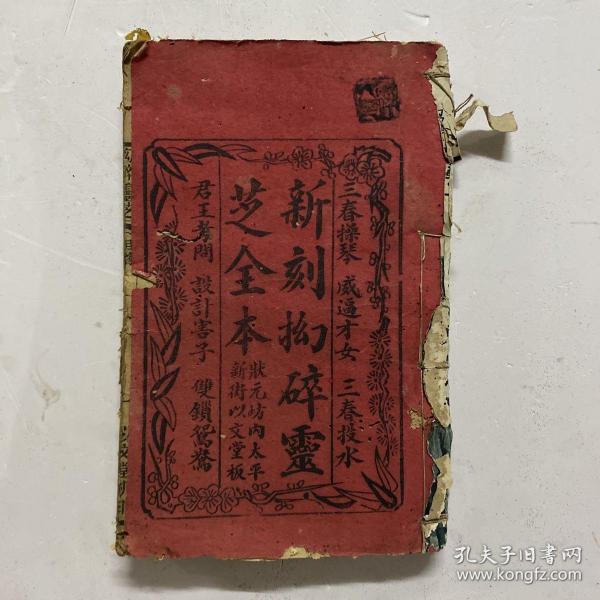 三春操琴 威逼才女 三春投水
新刻拗碎靈
芝全本
狀元坊內太平
新街以文堂板
君王考問 設計害子 雙鎖鴛鴦
孔夫子旧书网
www.kongfz.com